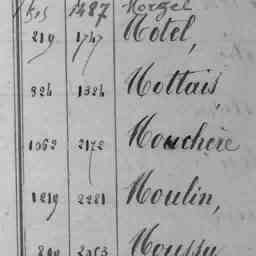 1487 Morzel
219 1747 Motel,
924 1324 Mottais,
1063 2172 Mouchère
1219 2281 Moulin,
2063 Moussu